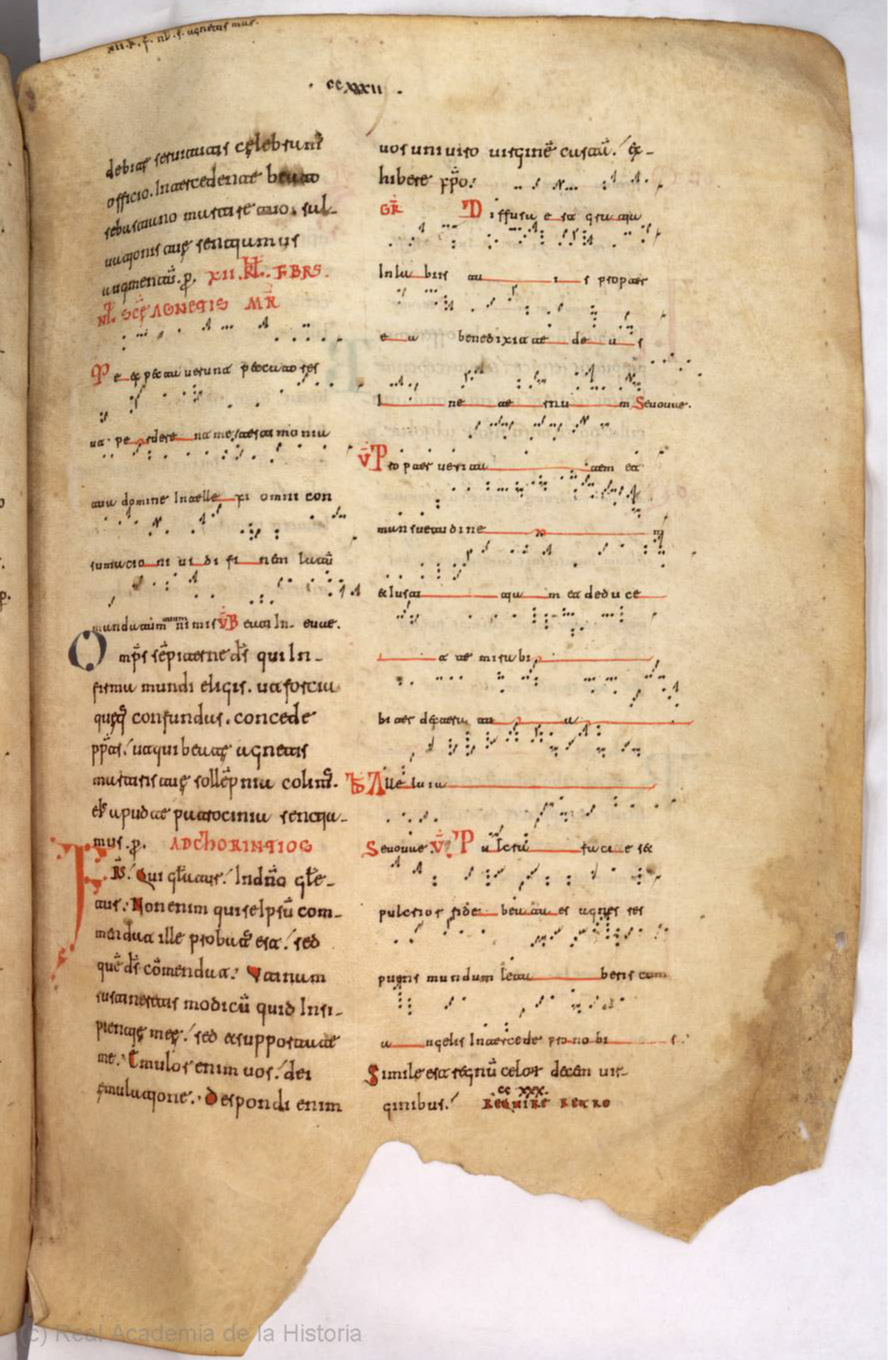 XII. k. f. nt. s. agnetis mar.
ccxxxii
debitę seruitutis cęlebrant
officio. Intercedente beato
sebastiano martire tuo. sal-
uationis tuę sentiamus
augmentū. p̲. XII. KL. FBRS.
NT. SCĘ AGNETIS MR̄
Me expectauerunt peccatores
ut perderent me testimonia
tua domine Intellexi omni con
sumationi uidi finem Latū
mandatum tuum nimis V̄ Beati In euue.
Omp̄s sēpiterne ds̄ qui In-
firma mundi eligis. ut fortia
quęq; confundas. concede
pp̄tius/ ut qui beatę agnetis
martiris tuę sollēpnia colimus.
eius apud te patrocinia sentia-
mus. p̲. AD CHORINTIOS
FRS̄. Qui glātur/ In dn̄o glē-
tur. Non enim qui seipsū com-
mendat ille probatus est/ sed
quē ds̄ cōmendat. Vtinam
sustineretis modicū quid Insi-
pientię meę/ sed et supportate
me. Emulor enim uos/ dei
emulatione. Despondi enim
uos uni uiro uirginē castā/ ex-
hibere xp̄o.
GR̄ Diffusa est gratia
In labiis tuis propter
ea benedixit te deus
In eternum Seuouae.
V̄ Propter ueritatem et
mansuetudinem
et iustitiam et deducet
te mirabi
liter dextera tua
Alleluia
Seuouae. V̄ Pulcra facie set
pulcrior fide beata es agnes res
puens mundum letaberis cum
angelis Intercede pro nobis.
Simile est regnū celor decem uir-
ginibus/ cc xxx. REQVIRE RETRO
(c) Real Academia de la Historia